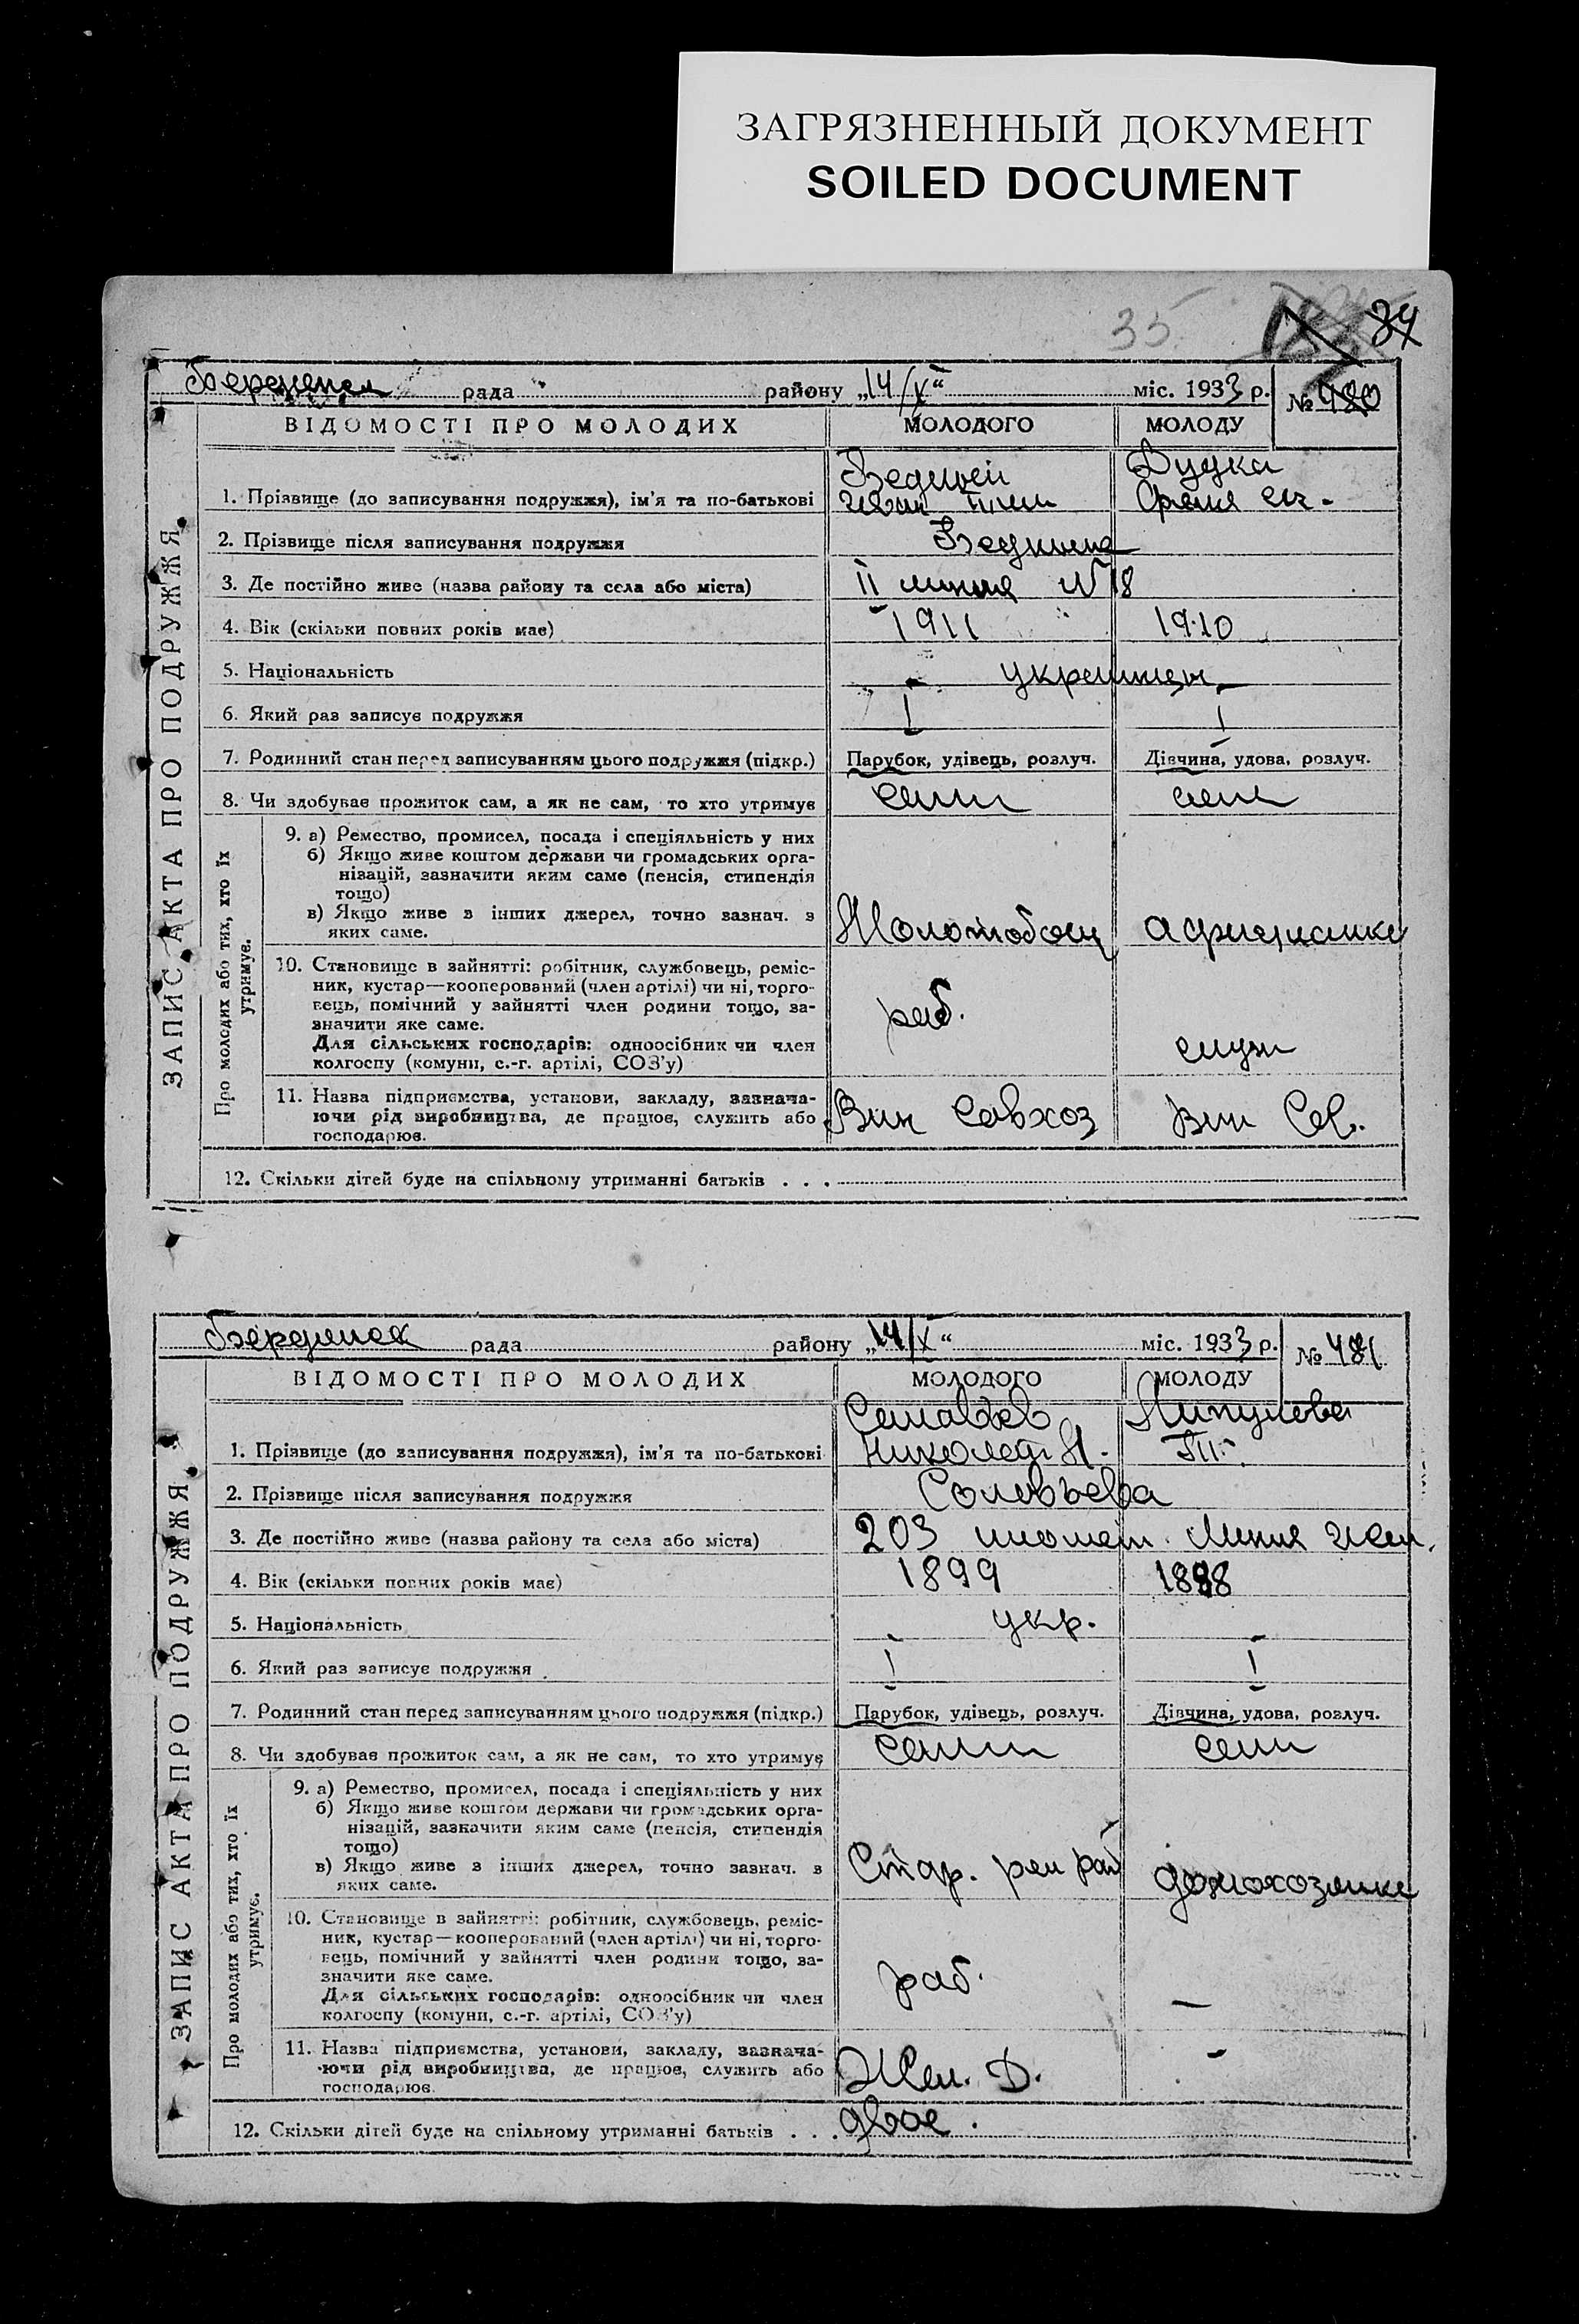 ЗАГРЯЗНЕННЫЙ ДОКУМЕНТ
SOILED DOCUMENT
35
34
рада району „14/X“ міс. 1933 р. № 480
ВІДОМОСТІ ПРО МОЛОДИХ МОЛОДОГО МОЛОДУ
Дудка
1. Прізвище (до записування подружжя), ім'я та по-батькові
2. Прізвище після записування подружжя
3. Де постійно живе (назва району та села або міста) II линия N 18
4. Вік (скільки повних років має) 1911 1910
5. Національність украинцы
6. Який раз записує подружжя I I
7. Родинний стан перед записуванням цього подружжя (підкр.) Парубок, удівець, розлуч. Дівчина, удова, розлуч.
8. Чи здобуває прожиток сам, а як не сам, то хто утримує сами сама
ЗАПИС АКТА ПРО ПОДРУЖЖЯ.
Про молодих або тих, хто їх утримує.
9. а) Ремество, промисел, посада і спеціяльність у них
б) Якщо живе коштом держави чи громадських орга-
нізацій, зазначити яким саме (пенсія, стипендія
тощо)
в) Якщо живе з інших джерел, точно зазнач. з
яких саме.
Молотобоец официантка
10. Становище в зайнятті: робітник, службовець, реміс-
ник, кустар—кооперований (член артілі) чи ні, торго-
вець, помічний у зайнятті член родини тощо, за-
значити яке саме.
Для сільських господарів: одноосібник чи член
колгоспу (комуни, с.-г. артілі, СОЗ'у)
раб.
служ
11. Назва підприємства, установи, закладу, зазнача-
ючи рід виробництва, де працює, служить або
господарює.
Вин Совхоз Вин Сов.
12. Скільки дітей буде на спільному утриманні батьків . . .
Бердянск рада району „14/X“ міс. 1933 р. № 481
ВІДОМОСТІ ПРО МОЛОДИХ МОЛОДОГО МОЛОДУ
1. Прізвище (до записування подружжя), ім'я та по-батькові
2. Прізвище після записування подружжя Соловьева
3. Де постійно живе (назва району та села або міста) 203 Линия
4. Вік (скільки повних років має) 1899 1898
5. Національність укр.
6. Який раз записує подружжя I I
7. Родинний стан перед записуванням цього подружжя (підкр.) Парубок, удівець, розлуч. Дівчина, удова, розлуч.
8. Чи здобуває прожиток сам, а як не сам, то хто утримує сами сам
ЗАПИС АКТА ПРО ПОДРУЖЖЯ.
Про молодих або тих, хто їх утримує.
9. а) Ремество, промисел, посада і спеціяльність у них
б) Якщо живе коштом держави чи громадських орга-
нізацій, зазначити яким саме (пенсія, стипендія
тощо)
в) Якщо живе з інших джерел, точно зазнач. з
яких саме.
Стар. рем раб домохозяйка
10. Становище в зайнятті: робітник, службовець, реміс-
ник, кустар—кооперований (член артілі) чи ні, торго-
вець, помічний у зайнятті член родини тощо, за-
значити яке саме.
Для сільських господарів: одноосібник чи член
колгоспу (комуни, с.-г. артілі, СОЗ'у)
раб. —
11. Назва підприємства, установи, закладу, зазнача-
ючи рід виробництва, де працює, служить або
господарює.
Жел. Д. -
12. Скільки дітей буде на спільному утриманні батьків . . . двое.